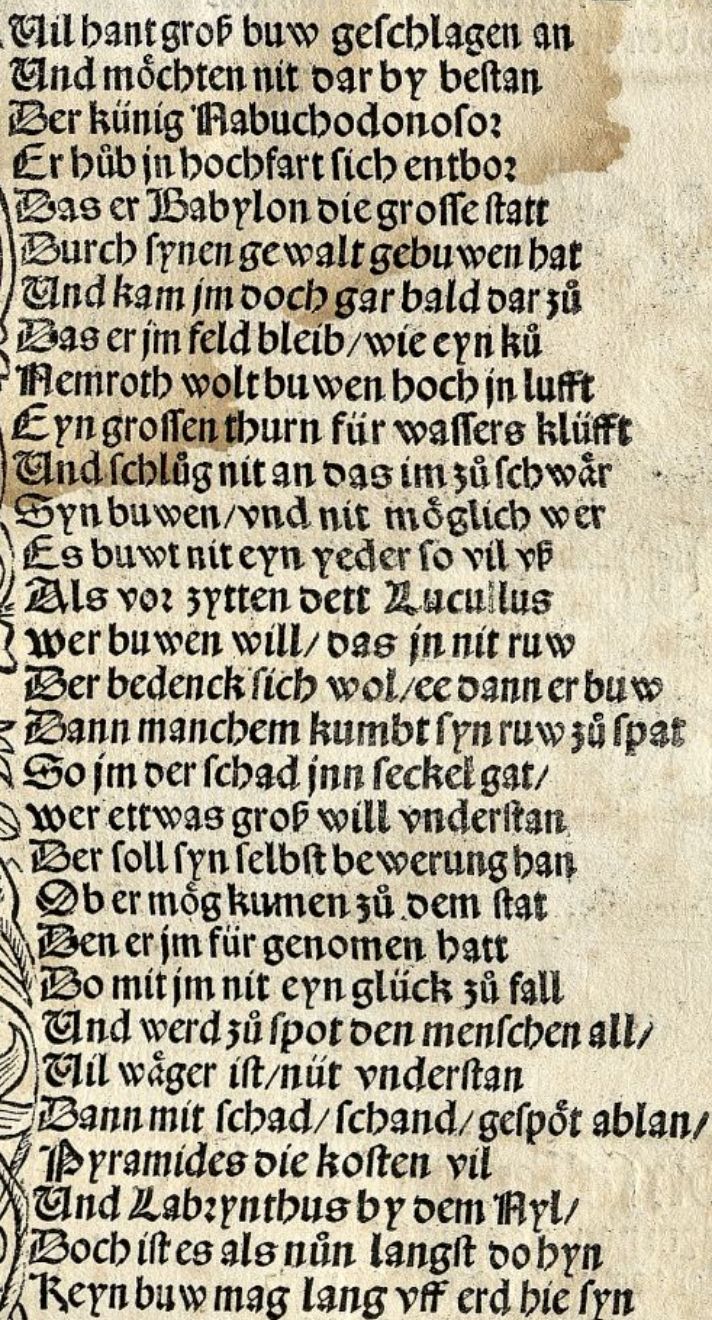 Vil hant groß buw geschlagen an
Vnd möchten nit dar by bestan
Der künig Nabuchodonosor
Er hůb jn hochfart sich entbor
Das er Babylon die grosse statt
Durch synen gewalt gebuwen hat
Vnd kam jm doch gar bald dar zů
Das er jm feld bleib/wie eyn ků
Nemroth wolt buwen hoch jn lufft
Eyn grossen thurn für wassers klüfft
Vnd schlůg nit an das im zů schwår
Syn buwen/vnd nit möglich wer
Es buwt nit eyn yeder so vil vß
Als vor zytten dett Lucullus
wer buwen will/das jn nit ruw
Der bedenck sich wol/ee dann er buw
Dann manchem kumbt syn ruw zů spat
So jm der schad jnn seckel gat/
wer ettwas groß will vnderstan
Der soll syn selbst bewerung han
Ob er mög kumen zů dem stat
Den er jm für genomen hatt
Do mit jm nit eyn glück zů fall
Vnd werd zů spot den menschen all/
Vil wåger ist/nüt vnderstan
Dann mit schad/schand/gespöt ablan/
Pyramides die kosten vil
Vnd Labrynthus by dem Nyl/
Doch ist es als nůn langst do hyn
Keyn buw mag lang vff erd hie syn